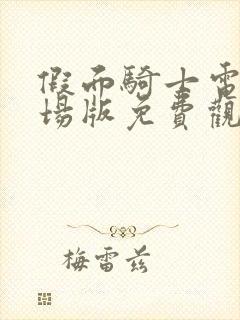 假面騎士電
場版免費觀
梅雷茲